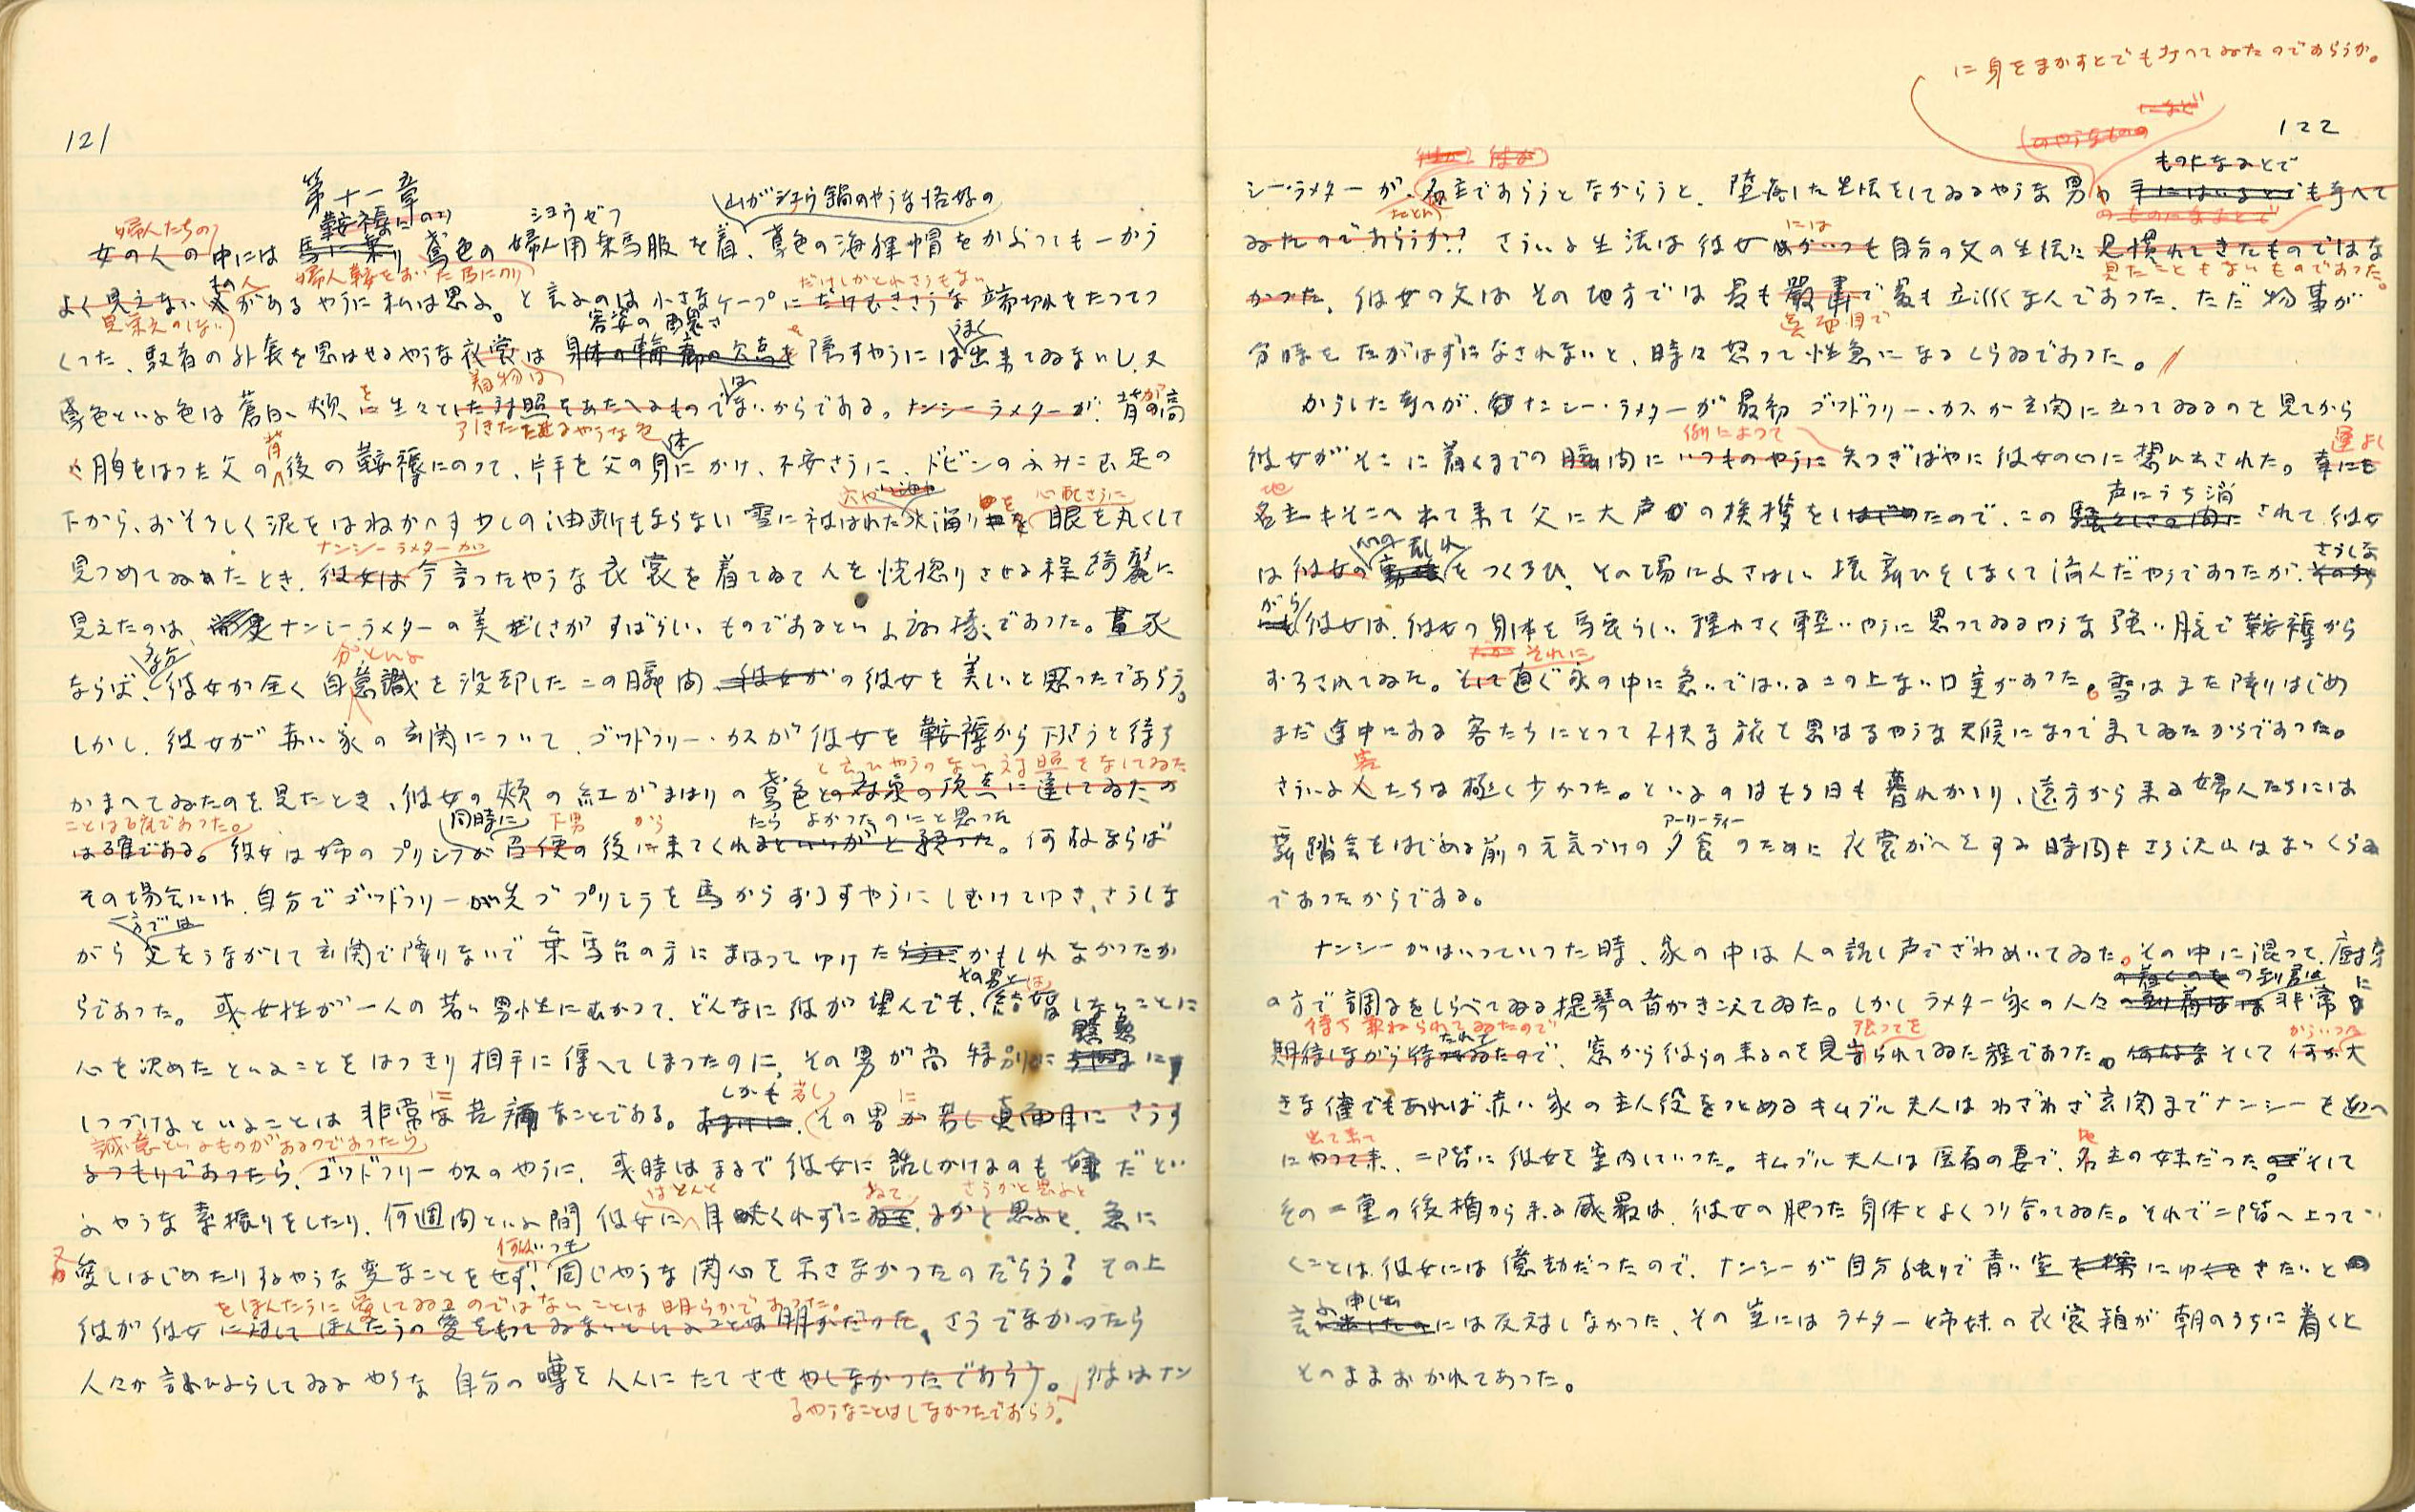 121
第十一章
女の人の中には馬に乗り鳶色の婦人用乗馬服を着、鳶色の海狸帽をかぶつても一かう
婦人たちの
鞍褥にのり
ショウゼフ
山がシチウ鍋のやうな恰好の
よく見えない人があるやうに私は思ふ。と言ふのは小さなケープにだけもきさうな立派切れをたつてつ
見栄えのしない
その人
婦人鞍をおいた馬にのり
だけしかとれさうもない
くつた、馭者の外套を思はせるやうな衣裳は身体の輪廓の欠点を隠すやうにはうまく出来てゐないし、又
着物は
容姿の
鳶色といふ色は蒼白い頬に生々とした対照をあたへるものではないからである。ナンシー・ラメターが、背の高
引きたたせるやうな色
く胸をはつた父の背後の鞍褥にのつて、片手を父の身体にかけ、不安さうに、ドビンのふみこむ足の
下から、おそろしく泥をはねかへす少しの油断もならない雪に被はれた水溜りを眼を丸くして
心配さうに
見つめてゐたとき、彼女は今言つたやうな衣裳を着てゐて人を恍惚りさせる程綺麗に
ナンシーラメターが
見えたのは、ナンシーラメターの美しさがすばらしいものであるといふ証拠であつた。畫家
ならば、多分彼女が全く自意識を没却したこの瞬間の彼女を美しいと思つたであらう。
分といふ
しかし、彼女が赤い家の玄関について、ゴッドフリー・カスが彼女を鞍褥から下さうと待ち
かまへてゐたのを見たとき、彼女の頬の紅がまはりの鳶色との対象の頂点に達してゐたの
と言ひやうのない対照をなしてゐた
は確である。彼女は姉のプリシラが同時に召使の後に来てくれるといいがと願つた。何故ならば
ことは確であつた。
下男
から
たらよかつたのにと思つた
その場合には、自分でゴッドフリーが先づプリシラを馬からおろすやうにしむけてゆき、さうしな
がら父をうながして玄関で降りないで乗馬台の方にまはつてゆけたかもしれなかつたか
方では
らであつた。或女性が一人の若い男性にむかつて、どんなに彼が望んでも、その男とは結婚しないことに
心を決めたといふことをはつきり相手に傳へてしまつたのに、その男が尚特別に慇懃に
しつづけるといふことは非常に苦痛なことである。しかもその男が若し真面目にさうす
るつもりであつたら、ゴッドフリーカスのやうに、或時はまるで彼女に話しかけるのも嫌だとい
誠意といふものがあるのであつたら
ふやうな素振りをしたり、何週間といふ間彼女に目もくれずにゐるかと思ふと、急に
ほとんど
ゐて
さうかと思ふと
又愛しはじめたりするやうな変なことをせず、同じやうな関心を示さなかつたのだらう？その上
何故いつも
彼が彼女に対してほんたうの愛をもつてゐないといふことは明かだつた、さうでなかつたら
をほんたうに愛してゐるのではないことは明らかであつた。
人々が言ひふらしてゐるやうな自分の噂を人々にたてさせやしなかつたであらう。彼はナン
るやうなことはしなかつたであらう。
122
に身をまかすとでも考へてゐたのであらうか。
のやうなものの
シー・ラメターが、名主であらうとなからうと、堕落した生活をしてゐるやうな男の手にはいるとでも考へて
たとへ
ものになるとで
のものになるとで
ゐたのであらうか？さういふ生活は彼女がいつも自分の父の生活に見慣れてきたものではな
には
見たこともないものであつた。
かつた、彼女の父はその地方では最も嚴粛で最も立派な人であつた、ただ物事が
真面目で
分時をたがはずになされないと、時々怒つて性急になるくらゐであつた。
かうした考へが、ナンシー・ラメターが最初ゴッドフリー・カスが玄関に立つてゐるのを見てから
彼女がそこに着くまでの瞬間にいつものやうに矢つぎばやに彼女の心に想ひ出された。幸にも
例によつて
運よく
名主もそこへ出て来て父に大声の挨拶をしはじめたので、この声にうち消されて彼女
地
は彼女の心の乱れをつくろひ、その場にふさはしい振舞ひをしなくて済んだやうであつたが、さうしな
がら彼女は、彼女の身体を馬鹿らしい程小さく軽いやうに思つてゐるやうな強い腕で鞍褥から
おろされてゐた。そして直ぐ家の中に急いではいるこの上ない口実があつた。雪はまた降りはじめ
それに
まだ途中にある客たちにとつて不快な旅と思はるやうな天候になつて来てゐたからであつた。
さういふ人たちは極く少かつた。といふのはもう日も暮れかかり、遠方から来る婦人たちには
客
舞踏会をはじめる前の元気づけの夕食のために衣裳がへをする時間もさう沢山はないくらゐ
アーリーティー
であつたからである。
ナンシーがはいつていつた時、家の中は人の話し声でざわめいてゐた。その中に混つて、廚房
の方で調子をしらべてゐる提琴の音がきこえてゐた。しかしラメター家の人々の到着は非常に
期待しながら待たれてゐたので、窓から彼らの来るのを見守られてゐた程であつた。そして何か大
待ち兼ねられてゐたので
張つてを
からいつた
きな催でもあれば赤い家の主人役をつとめるキムブル夫人はわざわざ玄関までナンシーを迎へ
にやつて来、二階に彼女を案内していつた。キムブル夫人は医者の妻で、名主の妹だつた。そして
出て来て
地
その二重の後楯から来る威厳は、彼女の肥つた身体とよくつり合つてゐた。それで二階へ上つてい
くことは、彼女には億劫だつたので、ナンシーが自分独りで青い室にゆきたいと
言ふ申し出には反対しなかつた、その室にはラメター姉妹の衣裳箱が朝のうちに着くと
そのままおかれてあつた。